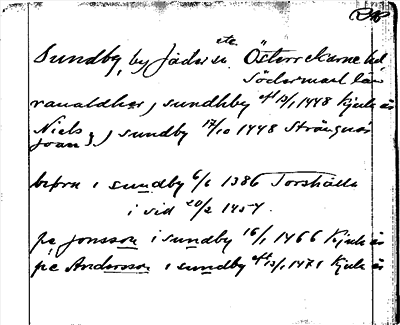 Sundby, by Jäders etc. Österrekarne hd
Södermanl län
ranaldher, sundhby 13/1 1448 Kjula
Niels, sundby 17/10 1448 Strängnäs
joan
i sundby 6/6 1386 Torshälla
i sid 20/2 1454.
pe jonsson i sundby 16/1 1466 Kjula
pe Andersson i sundby 13/1 1471 Kjula